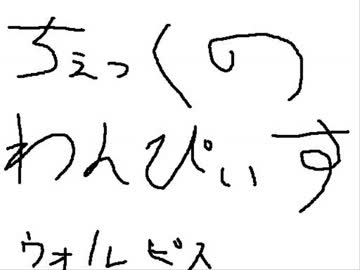 ちぇっくの
わんぴいす
ウォルピス